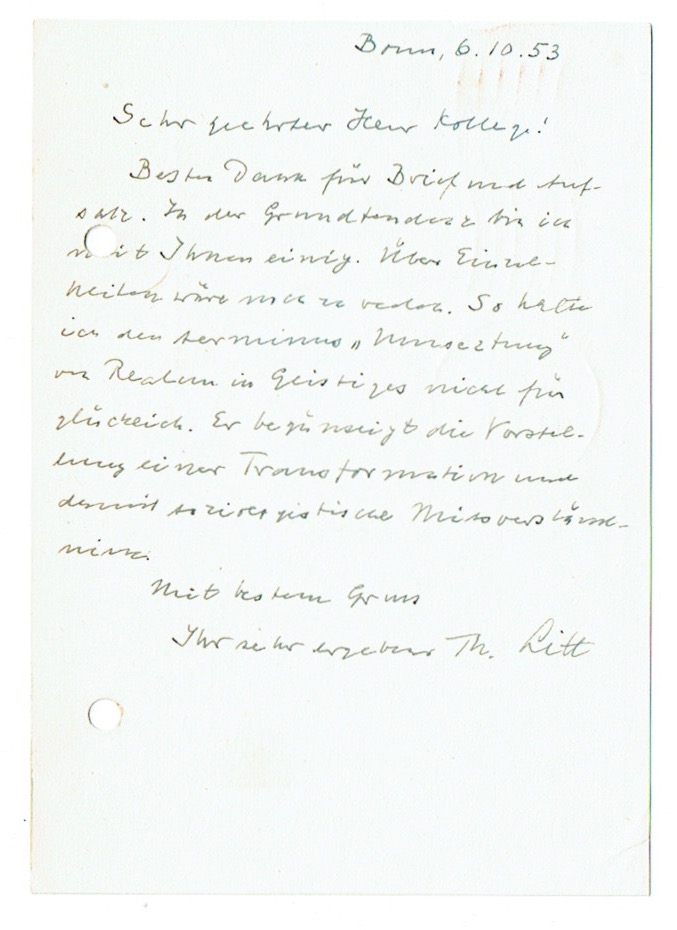 Bonn, 6.10.53
Sehr geehrter Herr Kollege!
Besten Dank für Brief und Auf-
satz. In der Grundtendenz bin ich
mit Ihnen einig. Über Einzel-
heiten wäre noch zu reden. So halte
ich den terminus „Umsetzung"
von Realem in Geistiges nicht für
glücklich. Er begünstigt die Vorstel-
lung einer Transformation und
damit soziologistische Missverständ-
nisse.
Mit bestem Gruss
Ihr sehr ergebener Th. Litt